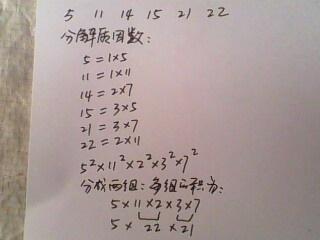 5 11 14 15 21 22
分解质因数:
5=1×5
11=1×11
14=2×7
15=3×5
21=3×7
22=2×11
5²×11²×2²×3²×7²
分成两组:每组的积为:
5×11×2×3×7
5× 22 ×21